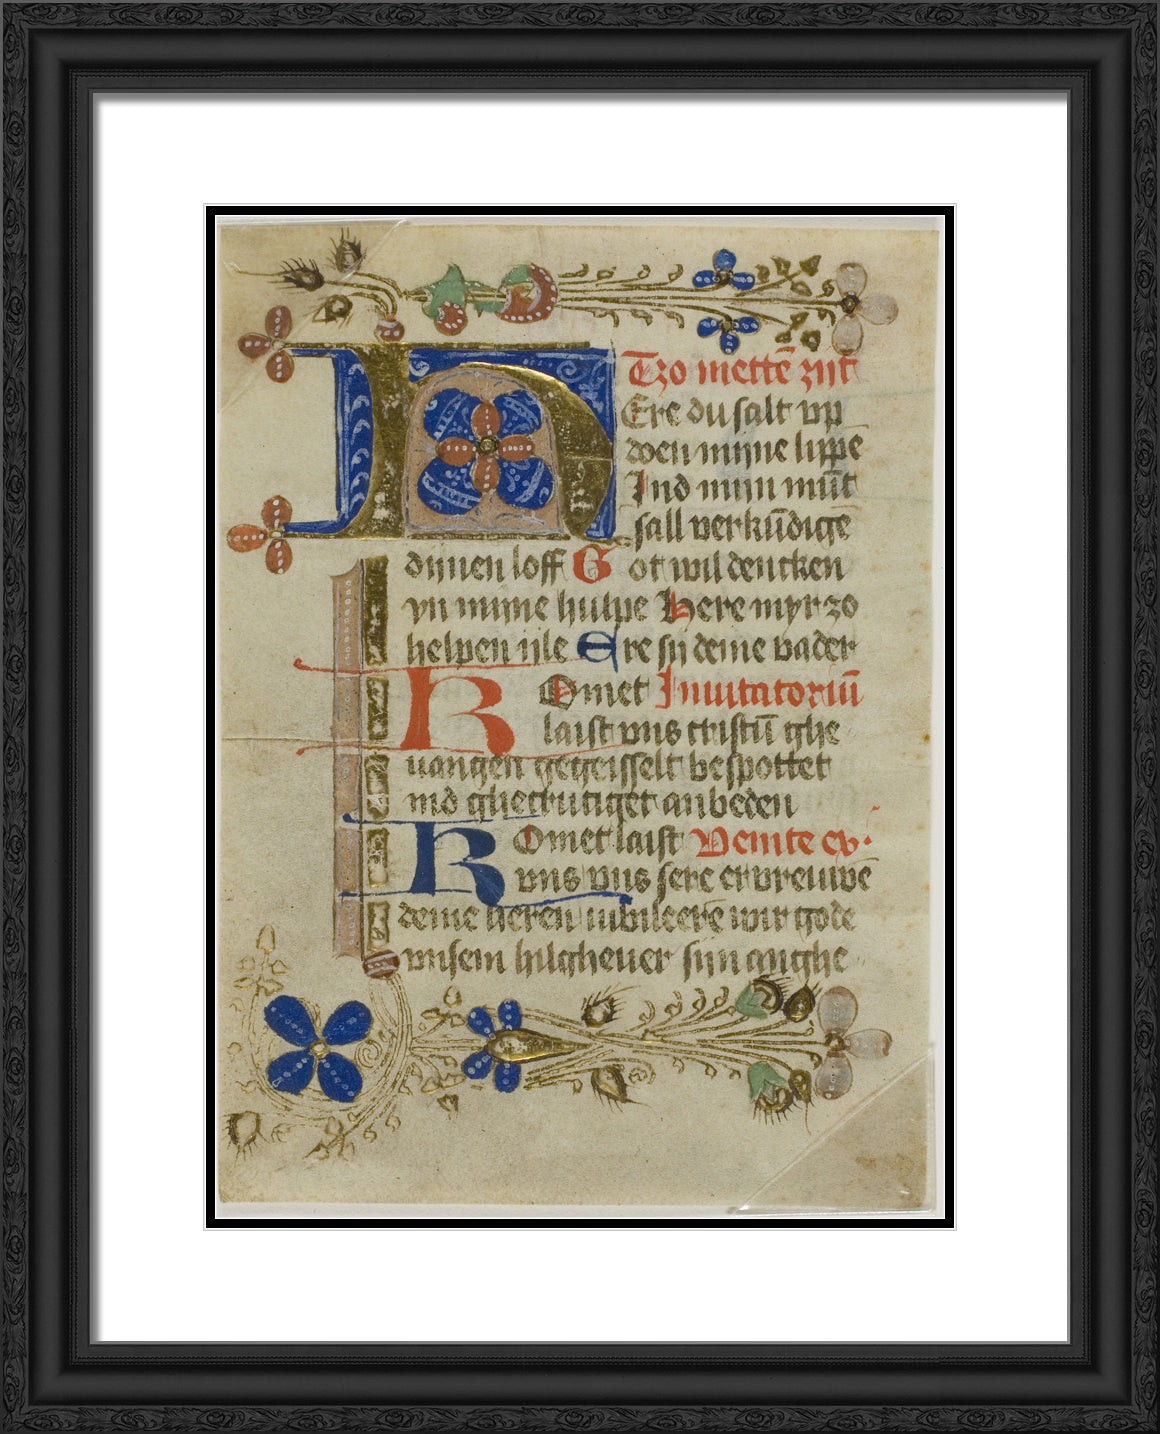 Tzo mettē zijt
HEre du salt vp
doen mijne lippe
Ind mijn mūt
sall verkūdigē
dijnen loff Got wil dencken
yn mijne hulpe Here myr zo
helpen ijle Ere sij deme vader
KOmet Inuitatoriū
laist vns cristū ghe
uangen gegeisselt bespottet
ind ghecrutiget anbeden
KOmet laist Venite ex
vns vns sere ervreuwē
deme heren iubileere wir gode
vnsem hilgheuer sijn anghe